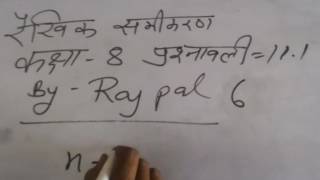 रैखिक समीकरण
कक्षा - 8 प्रश्नावली = 11.1
By - Raj pal 6
n -